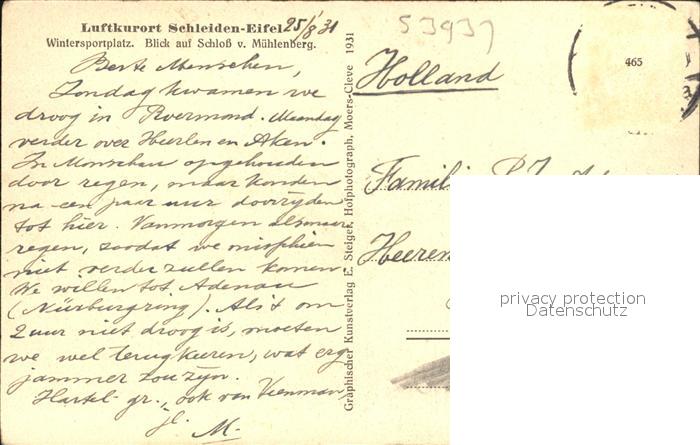 Luftkurort Schleiden-Eifel 25/8 31
Wintersportplatz. Blick auf Schloß v. Mühlenberg.
Beste Menschen,
Zondag kwamen we
droog in Roermond. Maandag
verder over Heerlen en Aken.
In Monschau opgehouden
door regen, maar konden
na een paar uur doorrijden
tot hier. Vanmorgen alsmaar
regen, zoodat we misschien
niet verder zullen komen
We willen tot Adenau
(Nürburgring). Als 't om
2 uur niet droog is, moeten
we wel terugkeeren, wat erg
jammer zou zijn.
Hartel. gr., ook van Veenman
M.
Graphischer Kunstverlag E. Steiger, Hofphotograph, Moers-Cleve 1931
53937
Holland
465
Famili
Heeren
privacy protection
Datenschutz